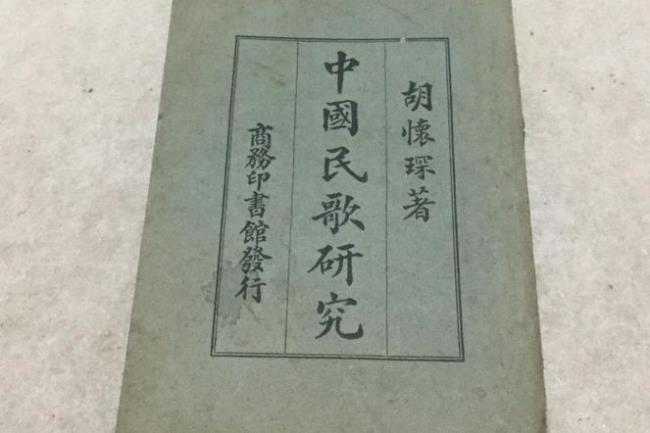 胡懷琛著
中國民歌研究
商務印書館發行